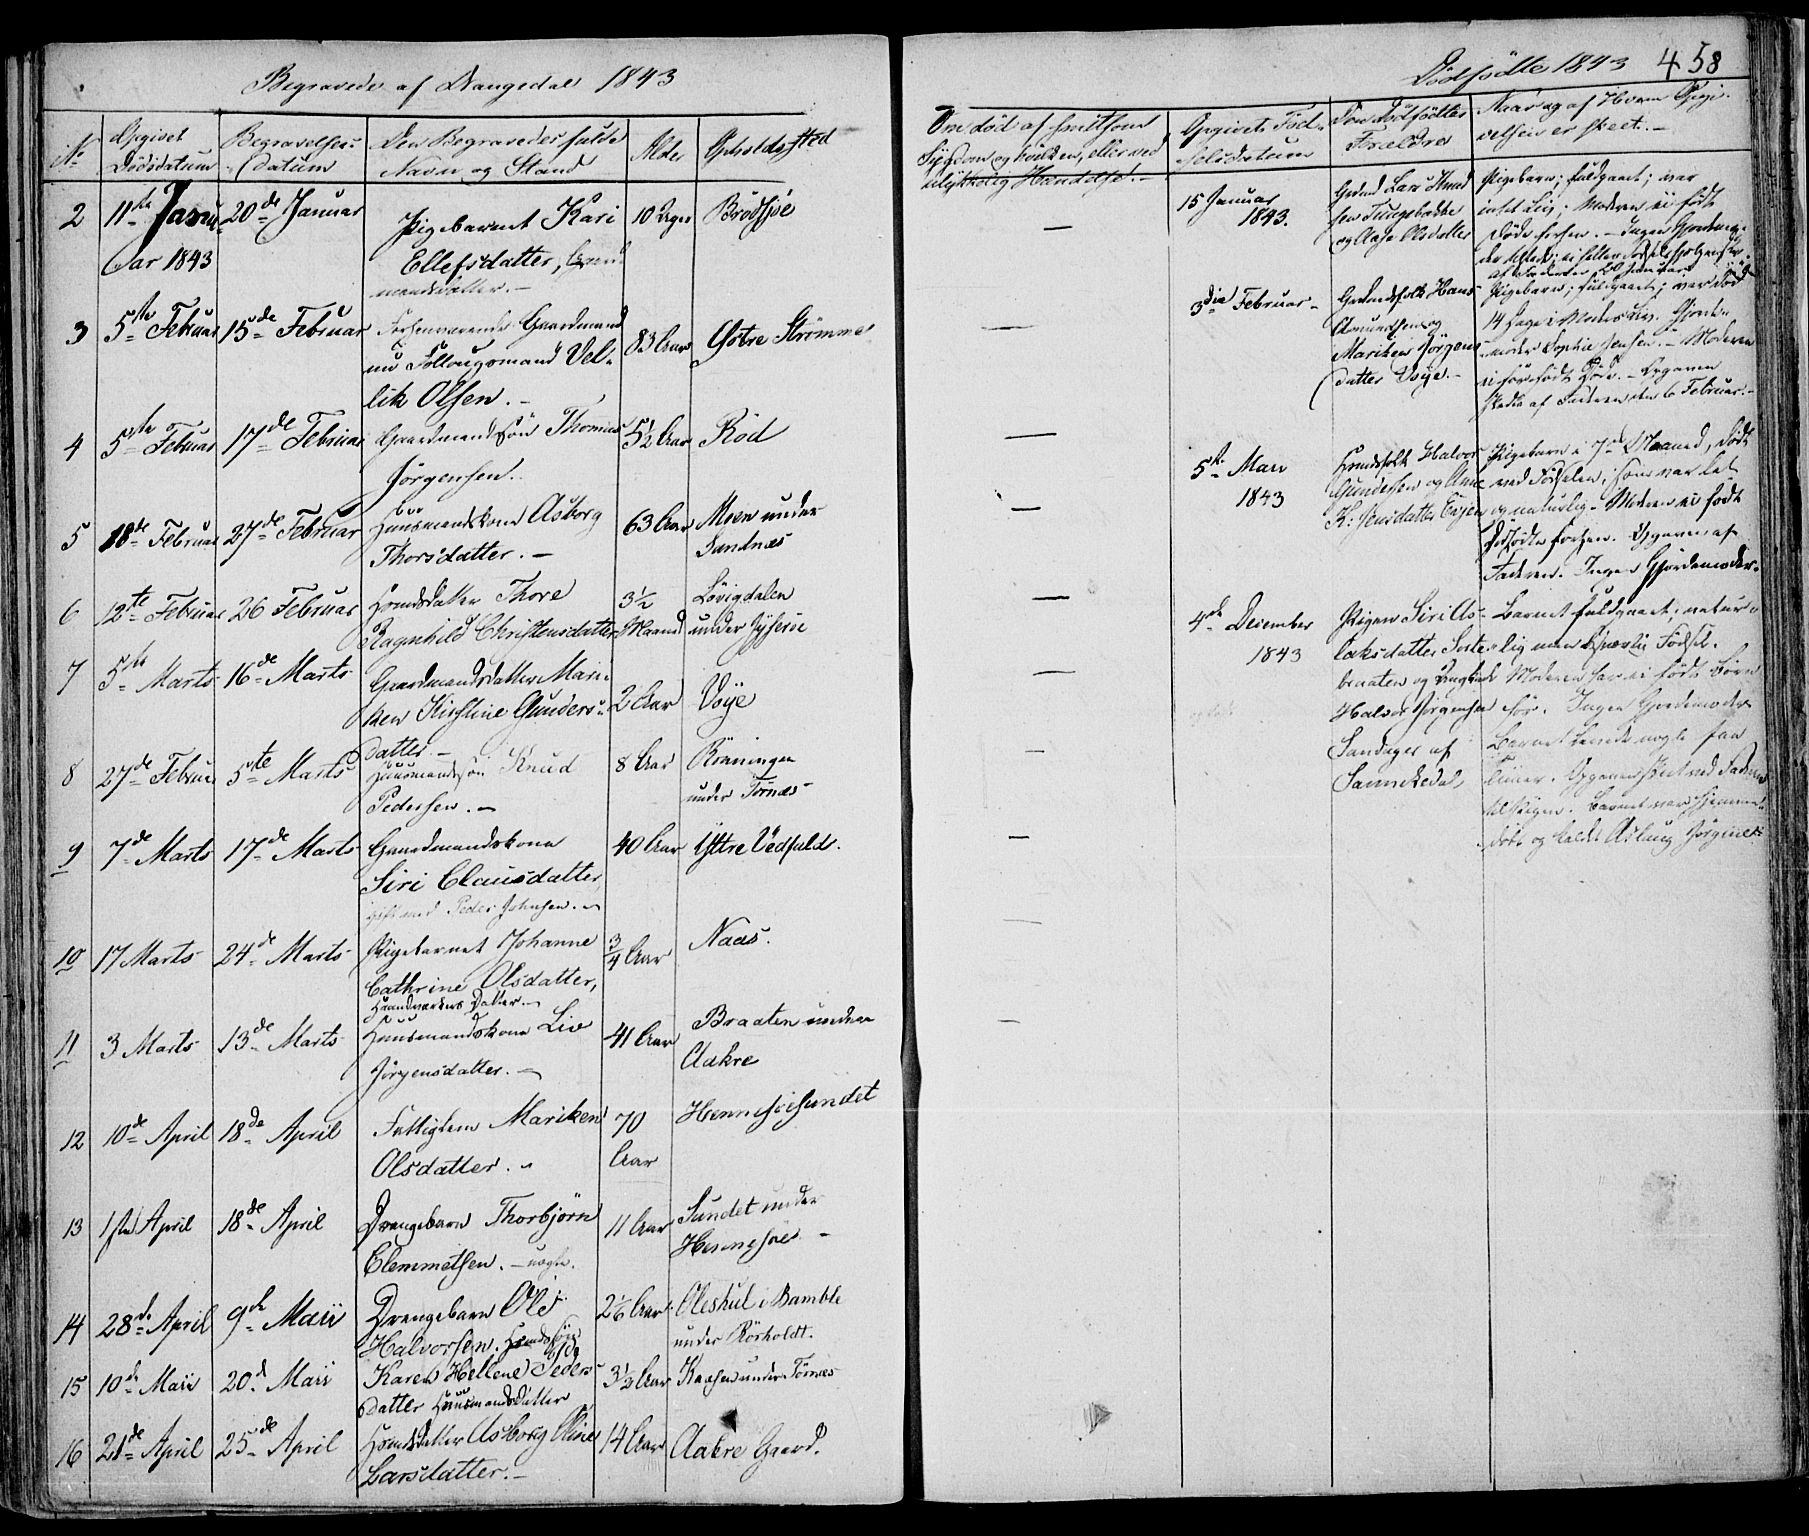 Begravede af Drangedal 1843
No
Opgivet
Dødsdatum
Begravelses-
datum
Den Begravedes fulde
Navn og Stand
Alder
Opholdssted
2
11te Janu-
ar 1843
20de Januar
Pigebarnet Kari
Ellefsdatter, Gaard
mandsdatter.-
10 Dager
Brødsjøe
3
5te Februar
15de Februar
Forhenværende Gaardmand
nu Follougsmand Vel-
lik Olsen.-
83 Aar
Østre Strømme
4
5te Februar
17de Februar
Gaardmandssøn Thomas
Jörgensen.
5½ Aar
Röd
5
18de Februar
27de Februar
Huusmandskone Asborg
Thorsdatter.-
63 Aar
Moen under
Sandnæs
6
12te Februar
26 Februar
Huusmdsdatter Thore
Ragnhild Christensdatter
3½
Maaned
Lövigdalen
under
7
5te Marts
16de Marts
Gaardmandsdatter Mari-
ken Kirstine Gunders-
datter.-
2 Aar
Vöÿe
8
27de Februar
5te Marts
Huusmandssön Knud
Pedersen.-
8 Aar
Rönningen
under Törnæs
9
7de Marts
17de Marts
Gaardmandskone
Siri Clausdatter,
gift med Peder Johnsen.-
40 Aar
Yttre Vedfald.
10
17 Marts
24de Marts
Pigebarnet Johanne
Cathrine Olsdatter,
Haandværkers Datter.-
3/4 Aar
Naas.
11
3 Marts
13de Marts
Huusmandskone Liv
Jörgensdatter.-
41 Aar
Braaten under
Aakre
12
10de April
18de April
Fattiglem Mariken
Olsdatter.
70
Aar
Hennesöesundet
13
1ste April
18de April
Drengebarn Thorbjörn
Clemmetsen.- uægte.
11 Aar
Sundet under
Hennesöe -
14
28de April
9de Maii
Drengebarn Ole
Halvorsen.
2⅙ Aar
Oleshul i Bamble
under Rörholdt.
15
10de Maii
20de Maii
Karen Hellene Peders-
datter Huusmandsdatter
3½ Aar
Kaasen under Törnæs
16
21de April
25de April
Huusmdsdatter Asborg Oline
Larsdatter.-
14 Aar
Aakre Gaard.
Dödfödte 1843
458
Om död af smitsom
Sygdom og hvilken, eller ved
ulykkelig Hændelse.-
Opgivet Föd-
selsdatum
Den Dödfödtes
Forældre
Naar og af Hvem Opgi-
velsen er skeet.-
15 Januar
1843.
Grmd Lars Knud
sen Tungebakke
og Aase Olsdatter
Pigebarn; fuldgaaet; var
intet Liv; Moderen ei födt
Döde forhen.- Ingen Gjordemo-
der
af Faderen 20 Januar
3die Februar
Gaardmdsfolk Hans
Amundsen og
Mariken Jörgens-
datter Voÿe.-
Pigebarn; fuldgaaet; var död
14 Dage i Moders Liv. Gjorde-
moder Sophie Jensen.- Moderen
ei för födt Döde.- Opgaven
skedte af Faderen den 6 Februar.-
5te Marts
1843
Huusmdsfolk Halvor
Gundersen og Anne
K: Jensdatter
Pigebarn i 7de Maaned, Födt
ved Födselen, som var let
og naturlig.- Moderen ei födt
Dödfödte forhen. Opgaven af
Faderen. Ingen Gjordemoder.
4de December
1843
Pigen Siri As-
laksdatter
braaten og Ungkarl
Halvor Jörgensen
Sandager af
Sannikedal,
Barnet fuldgaaet; natur-
lig men Födsel.
Moderen har ei födt Börn
för. Ingen Gjordemoder
Barnet levede nogle faa
Timer. Opgaven skeet ved Faderen
til Pigen. Barnet var hjemme-
döbt og kaldt Aslaug Jörgine.